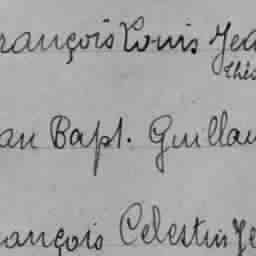 rançois Louis Jea
thé
an Bapt. Guillau
ançois Celestin Je